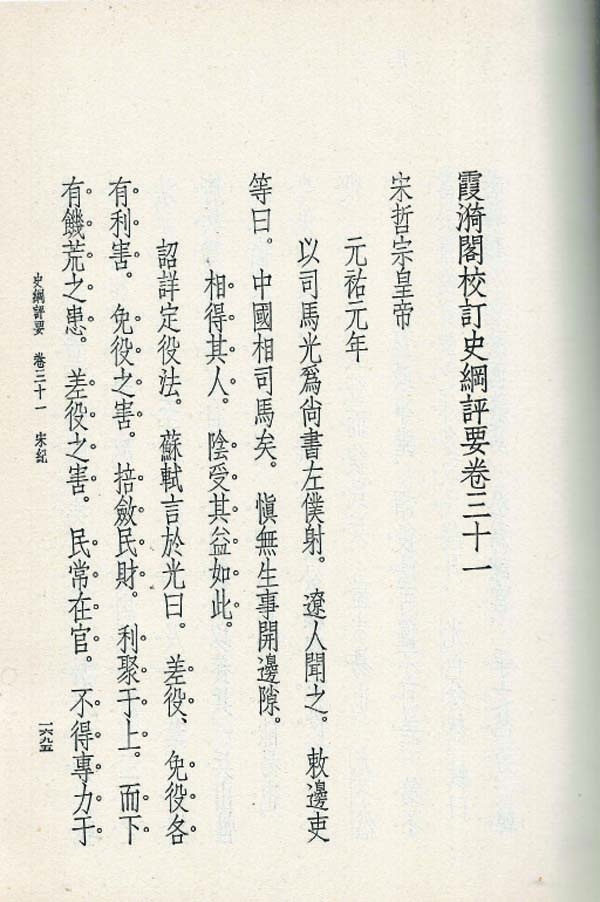 霞漪閣校訂史綱評要卷三十一
宋哲宗皇帝
元祐元年
以司馬光爲尚書左僕射。遼人聞之。敕邊吏
等曰。中國相司馬矣。愼無生事開邊隙。
相得其人。陰受其益如此。
詔詳定役法。蘇軾言於光曰。差役、免役各
有利害。免役之害。掊斂民財。利聚于上。而下
有饑荒之患。差役之害。民常在官。不得專力于
史綱評要 卷三十一 宋紀
一六九五